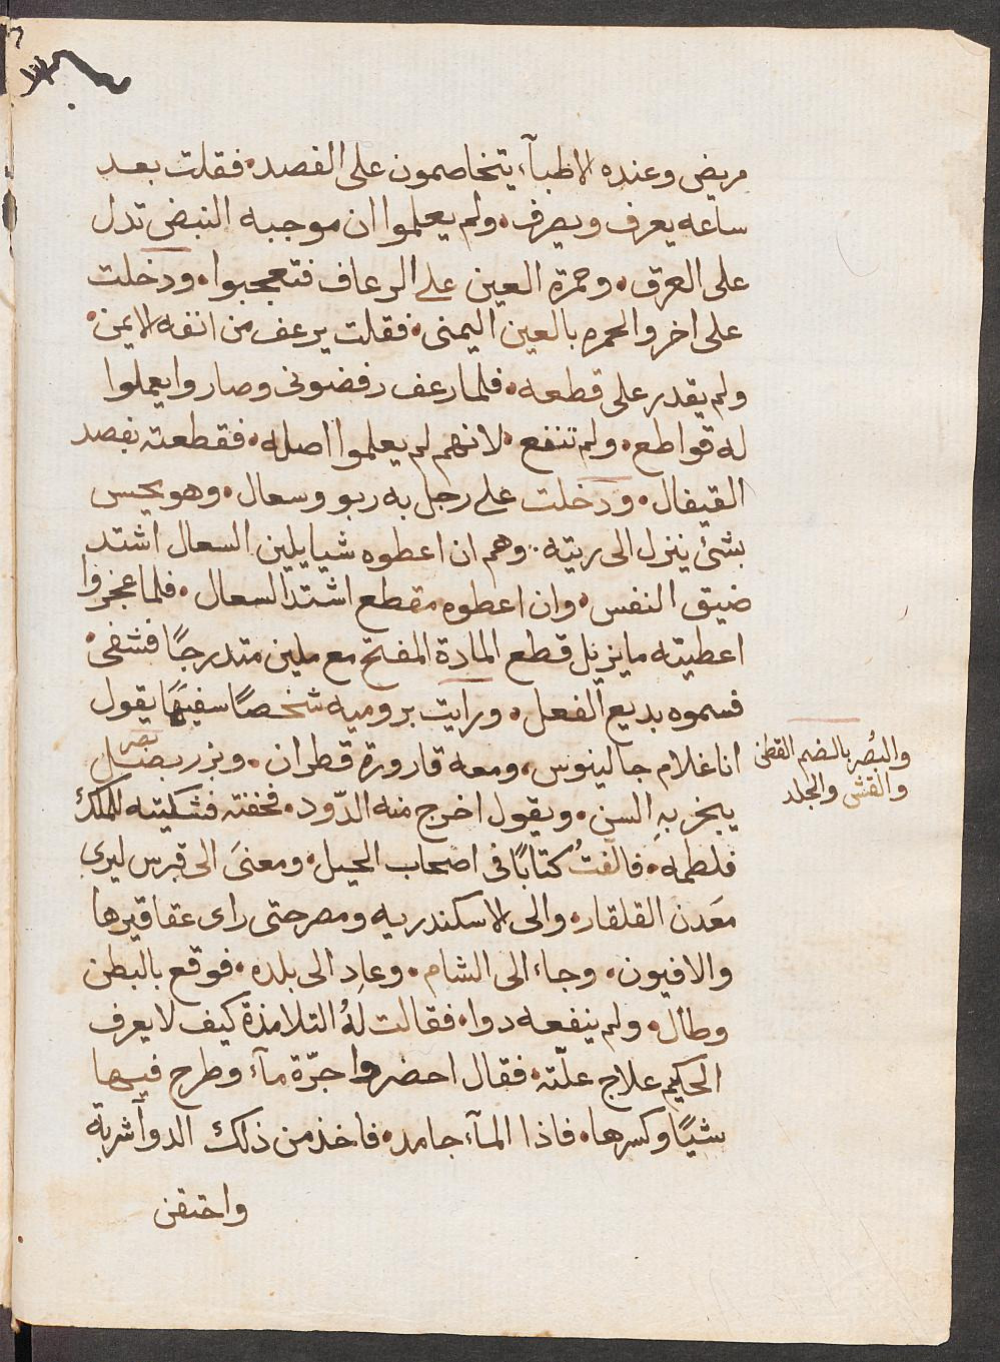 مريض وعنده لاطبآء يتخاصمون على الفصد۰ فقلت بعد
ساعه يعرف ويصرف۰ ولم يعلموا ان موجبه النبض تدل
على العرق۰ وحمرة العين على الرعاف فتعجبوا۰ ودخلت
على اخر والحمره بالعين اليمنى۰ فقلت يرعف من انفه لايمن۰
ولم يقدر على قطعه۰ فلما رعف رفضونى وصاروا يعملوا
له قواطع۰ ولم تنفع۰ لانهم لم يعلموا اصله۰ فقطعته بفصد
القيفال۰ ودخلت على رجل به ربو وسعال۰ وهو يحس
بشئ ينزل الى ريته۰ وهم ان اعطوه شيا يلين السعال اشتد
ضيق النفس۰ وان اعطوه مقطع اشتد السعال۰ فلما عجزوا
اعطيته ما يزيل قطع المادة المفتح مع ملين متدرجًا فشفى۰
فسموه بديع الفعل۰ ورايت بروميه شخصًا سفيهًا يقول
انا غلام جالينوس، ومعه قارورة قطران۰ وبزر بصل
بصر
والبُصر بالضم القطن
والقش والجلد
يبخر بهِ السن۰ ويقول اخرج منه الدّود۰ فخفته فشكيته للملك
فلطمه۰ فالفتُ كتابًا فى اصحاب الحيل۰ ومعنىَ الى قبرس ليرى
معَدن القلقار۰ والى لاسكندريه ومصر حتى راى عقاقيرها
والافيون۰ وجاء الى الشام۰ وعادِ الى بلده۰ فوقع بالبطن
وطال۰ ولم ينفعه دوا۰ فقالت لهُ التلامذة كيف لا يعرف
الحكيم علاج علّته۰ فقال احضروا جرّة مآء وطرح فيها
شيًا وكسرها۰ فاذا المآء جامد۰ فاخذ من ذلك الدوآ شربة
واحتقن